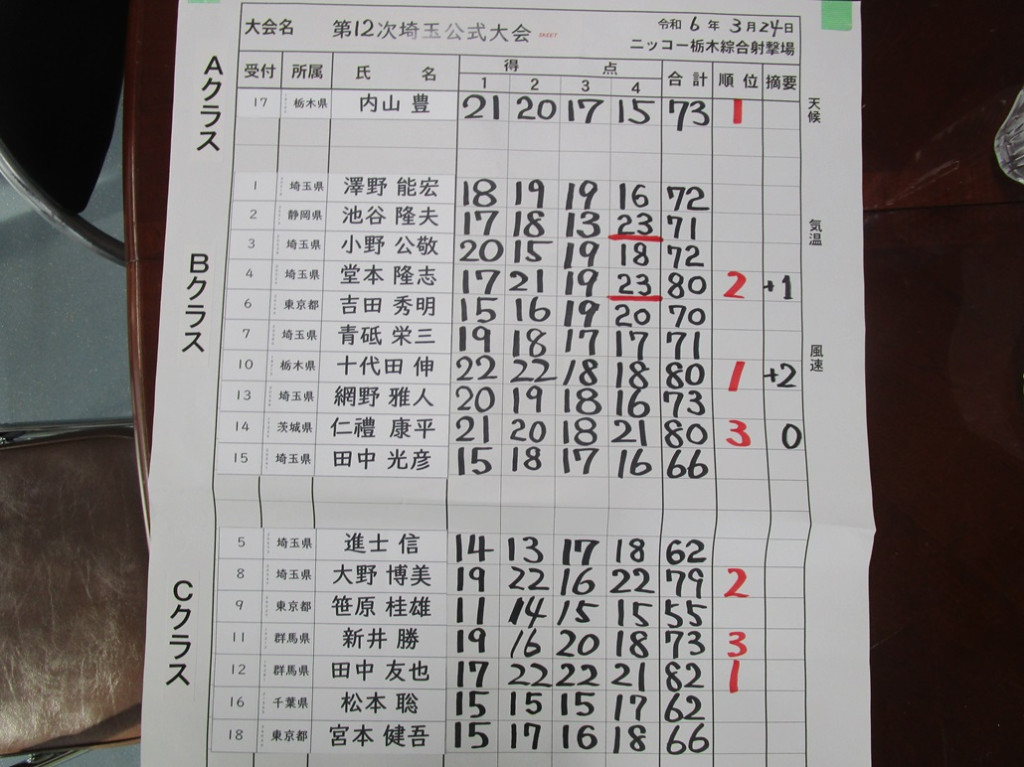 大会名 第12次埼玉公式大会 SKEET 令和 6 年 3月24日
ニッコー栃木綜合射撃場
受付 所属 氏 名 得 点 合計 順位 摘要
1 2 3 4
Aクラス
17 栃木県 内山 豊 21 20 17 15 73 1
Bクラス
1 埼玉県 澤野 能宏 18 19 19 16 72
2 静岡県 池谷 隆夫 17 18 13 23 71
3 埼玉県 小野 公敬 20 15 19 18 72
4 埼玉県 堂本 隆志 17 21 19 23 80 2 +1
6 東京都 吉田 秀明 15 16 19 20 70
7 埼玉県 青砥 栄三 19 18 17 17 71
10 栃木県 十代田 伸 22 22 18 18 80 1 +2
13 埼玉県 網野 雅人 20 19 18 16 73
14 茨城県 仁禮 康平 21 20 18 21 80 3 0
15 埼玉県 田中 光彦 15 18 17 16 66
Cクラス
5 埼玉県 進士 信 14 13 17 18 62
8 埼玉県 大野 博美 19 22 16 22 79 2
9 東京都 笹原 桂雄 11 14 15 15 55
11 群馬県 新井 勝 19 16 20 18 73 3
12 群馬県 田中 友也 17 22 22 21 82 1
16 千葉県 松本 聡 15 15 15 17 62
18 東京都 宮本 健吾 15 17 16 18 66
天候
気温
風速